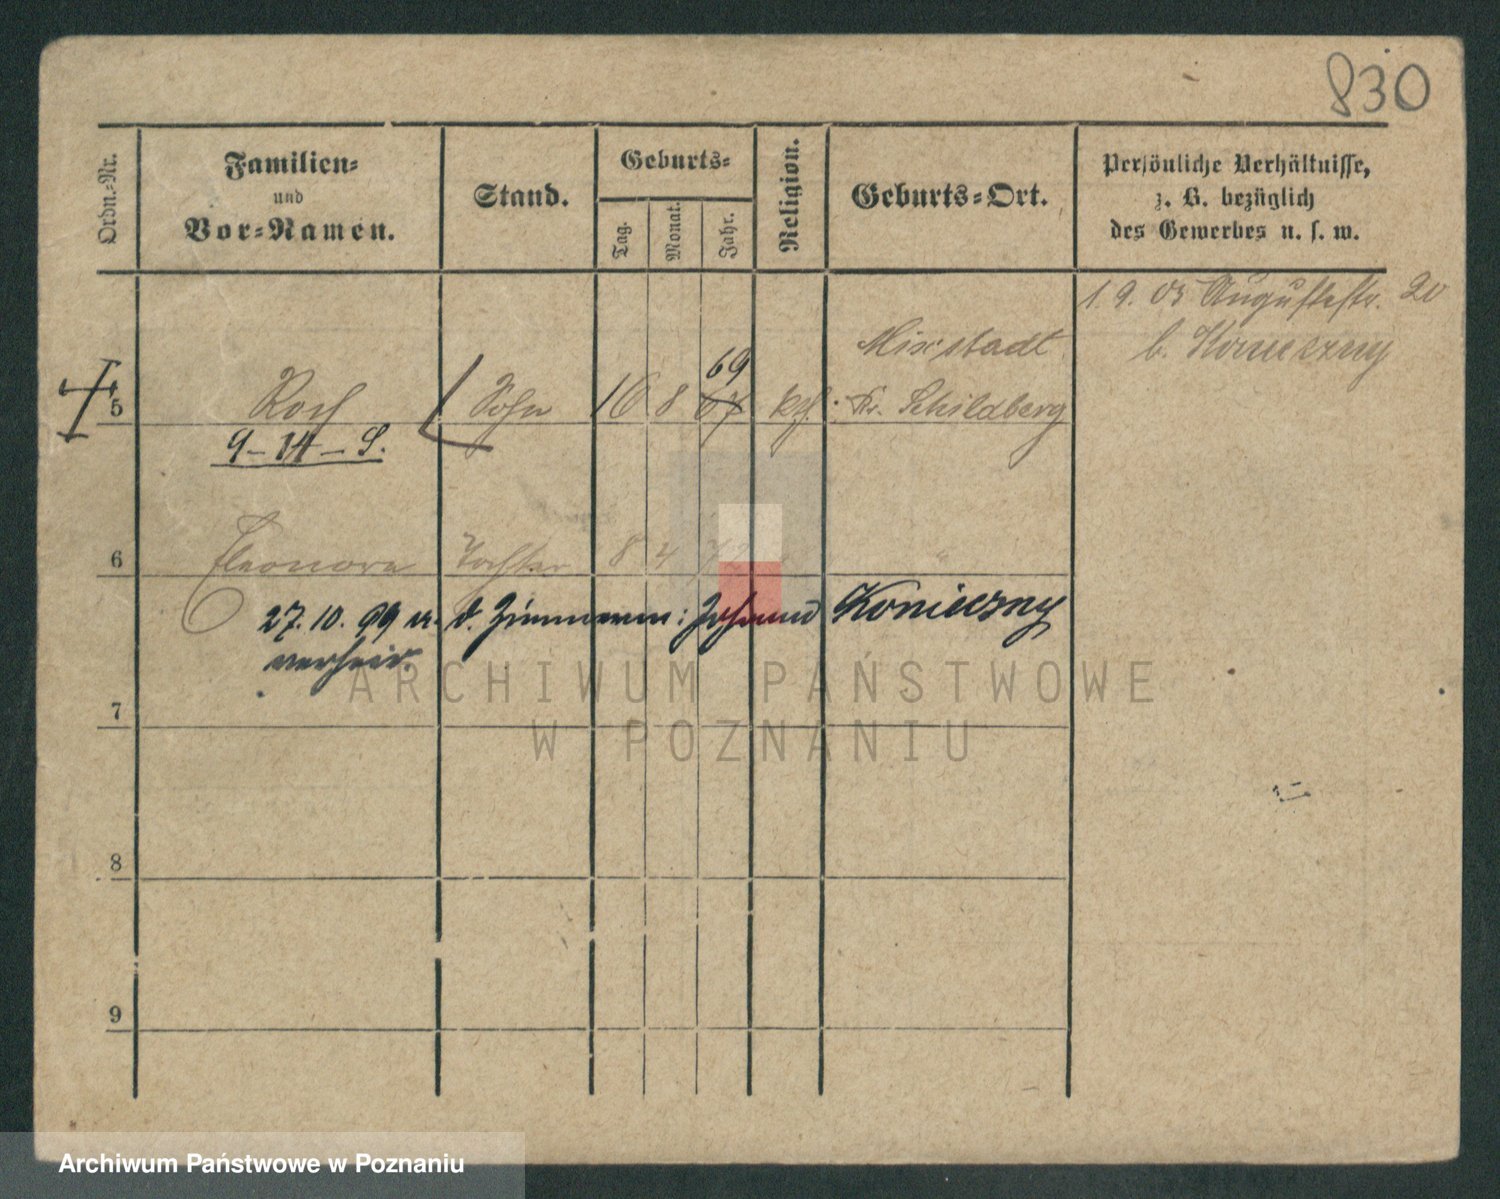 830
Ordn.-Nr.
Familien-
und
Vor-Namen.
Stand.
Geburts-
Tag.
Monat.
Jahr.
Religion.
Geburts-Ort.
Persönliche Verhältnisse,
z. B. bezüglich
des Gewerbes u. s. w.
1. 9. 03 Augustastr. 20
b. Konieczny
Mixstadt
69
5 Roch Sohn 16 8 67 kth. Kr. Schildberg
9-14-S.
6 Eleonora Tochter 8 4 72 "
27. 10. 99 m. d. Zimmerm: Johann Konieczny
verheir.
7
8
9
ARCHIWUM PAŃSTWOWE
W POZNANIU
Archiwum Państwowe w Poznaniu